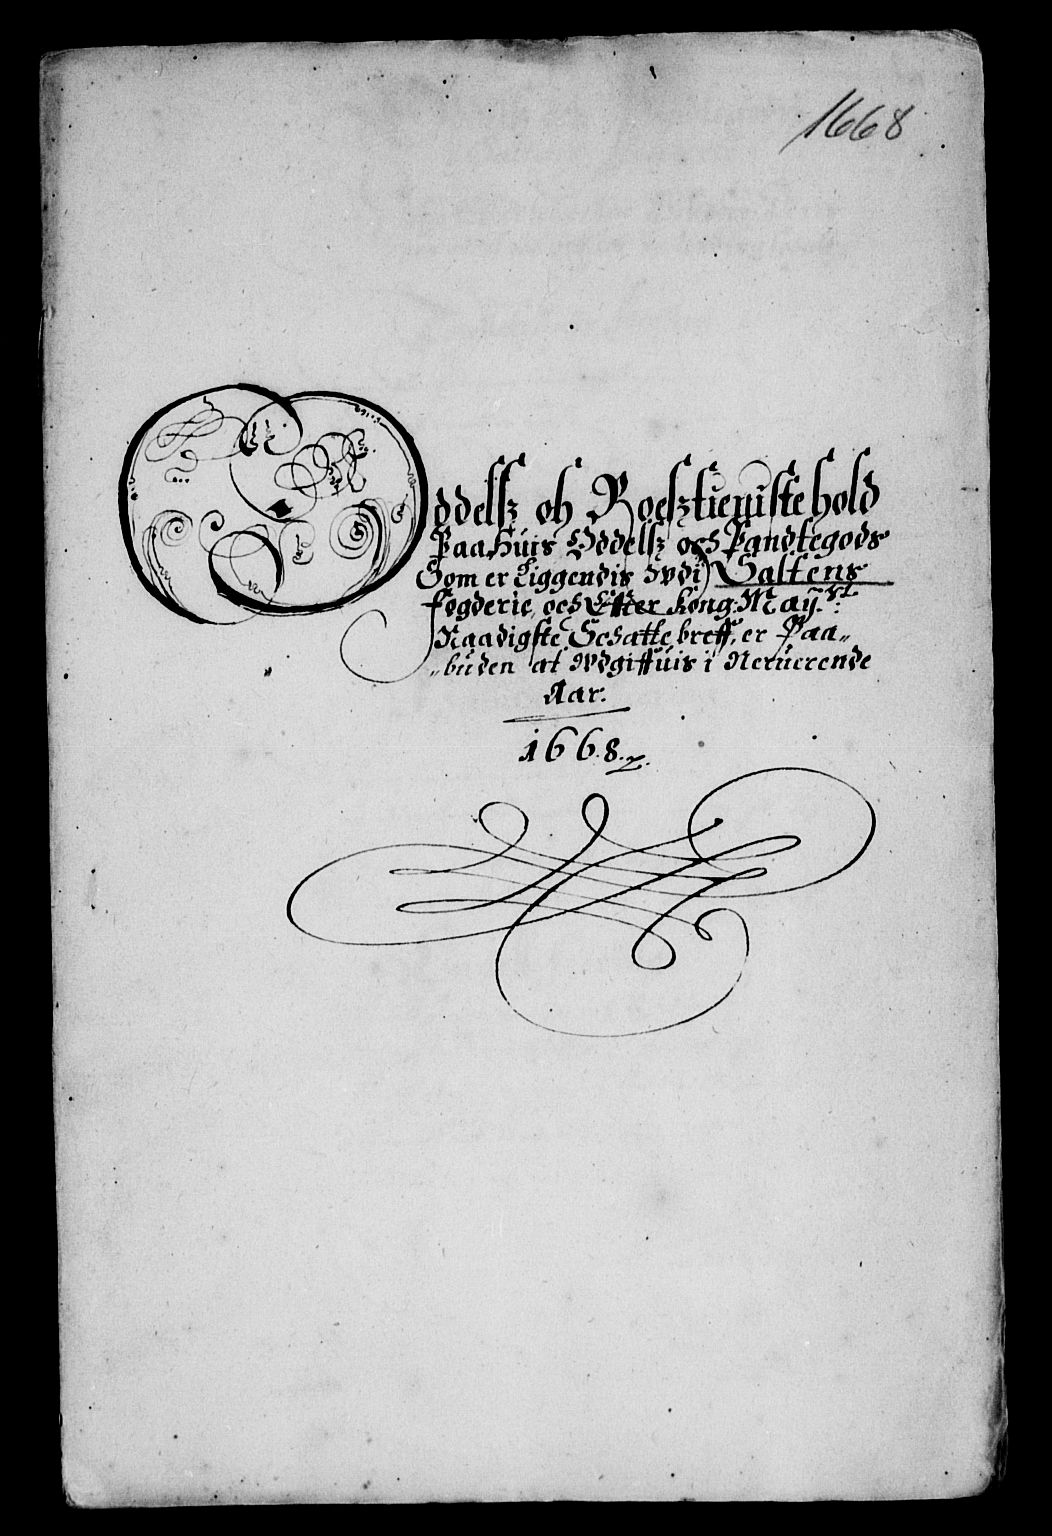 1668
Oddelß oh Roesztienistehold
Paa Huis Oddelß och Pandtegods
Som er Liggendis Vdi Saltens
fogderie, och Effter Kong: May:st:
Naadigste Schatte breff, er Paa„
„buden at vdgiffuis i Neruerende
Aar.
1668.